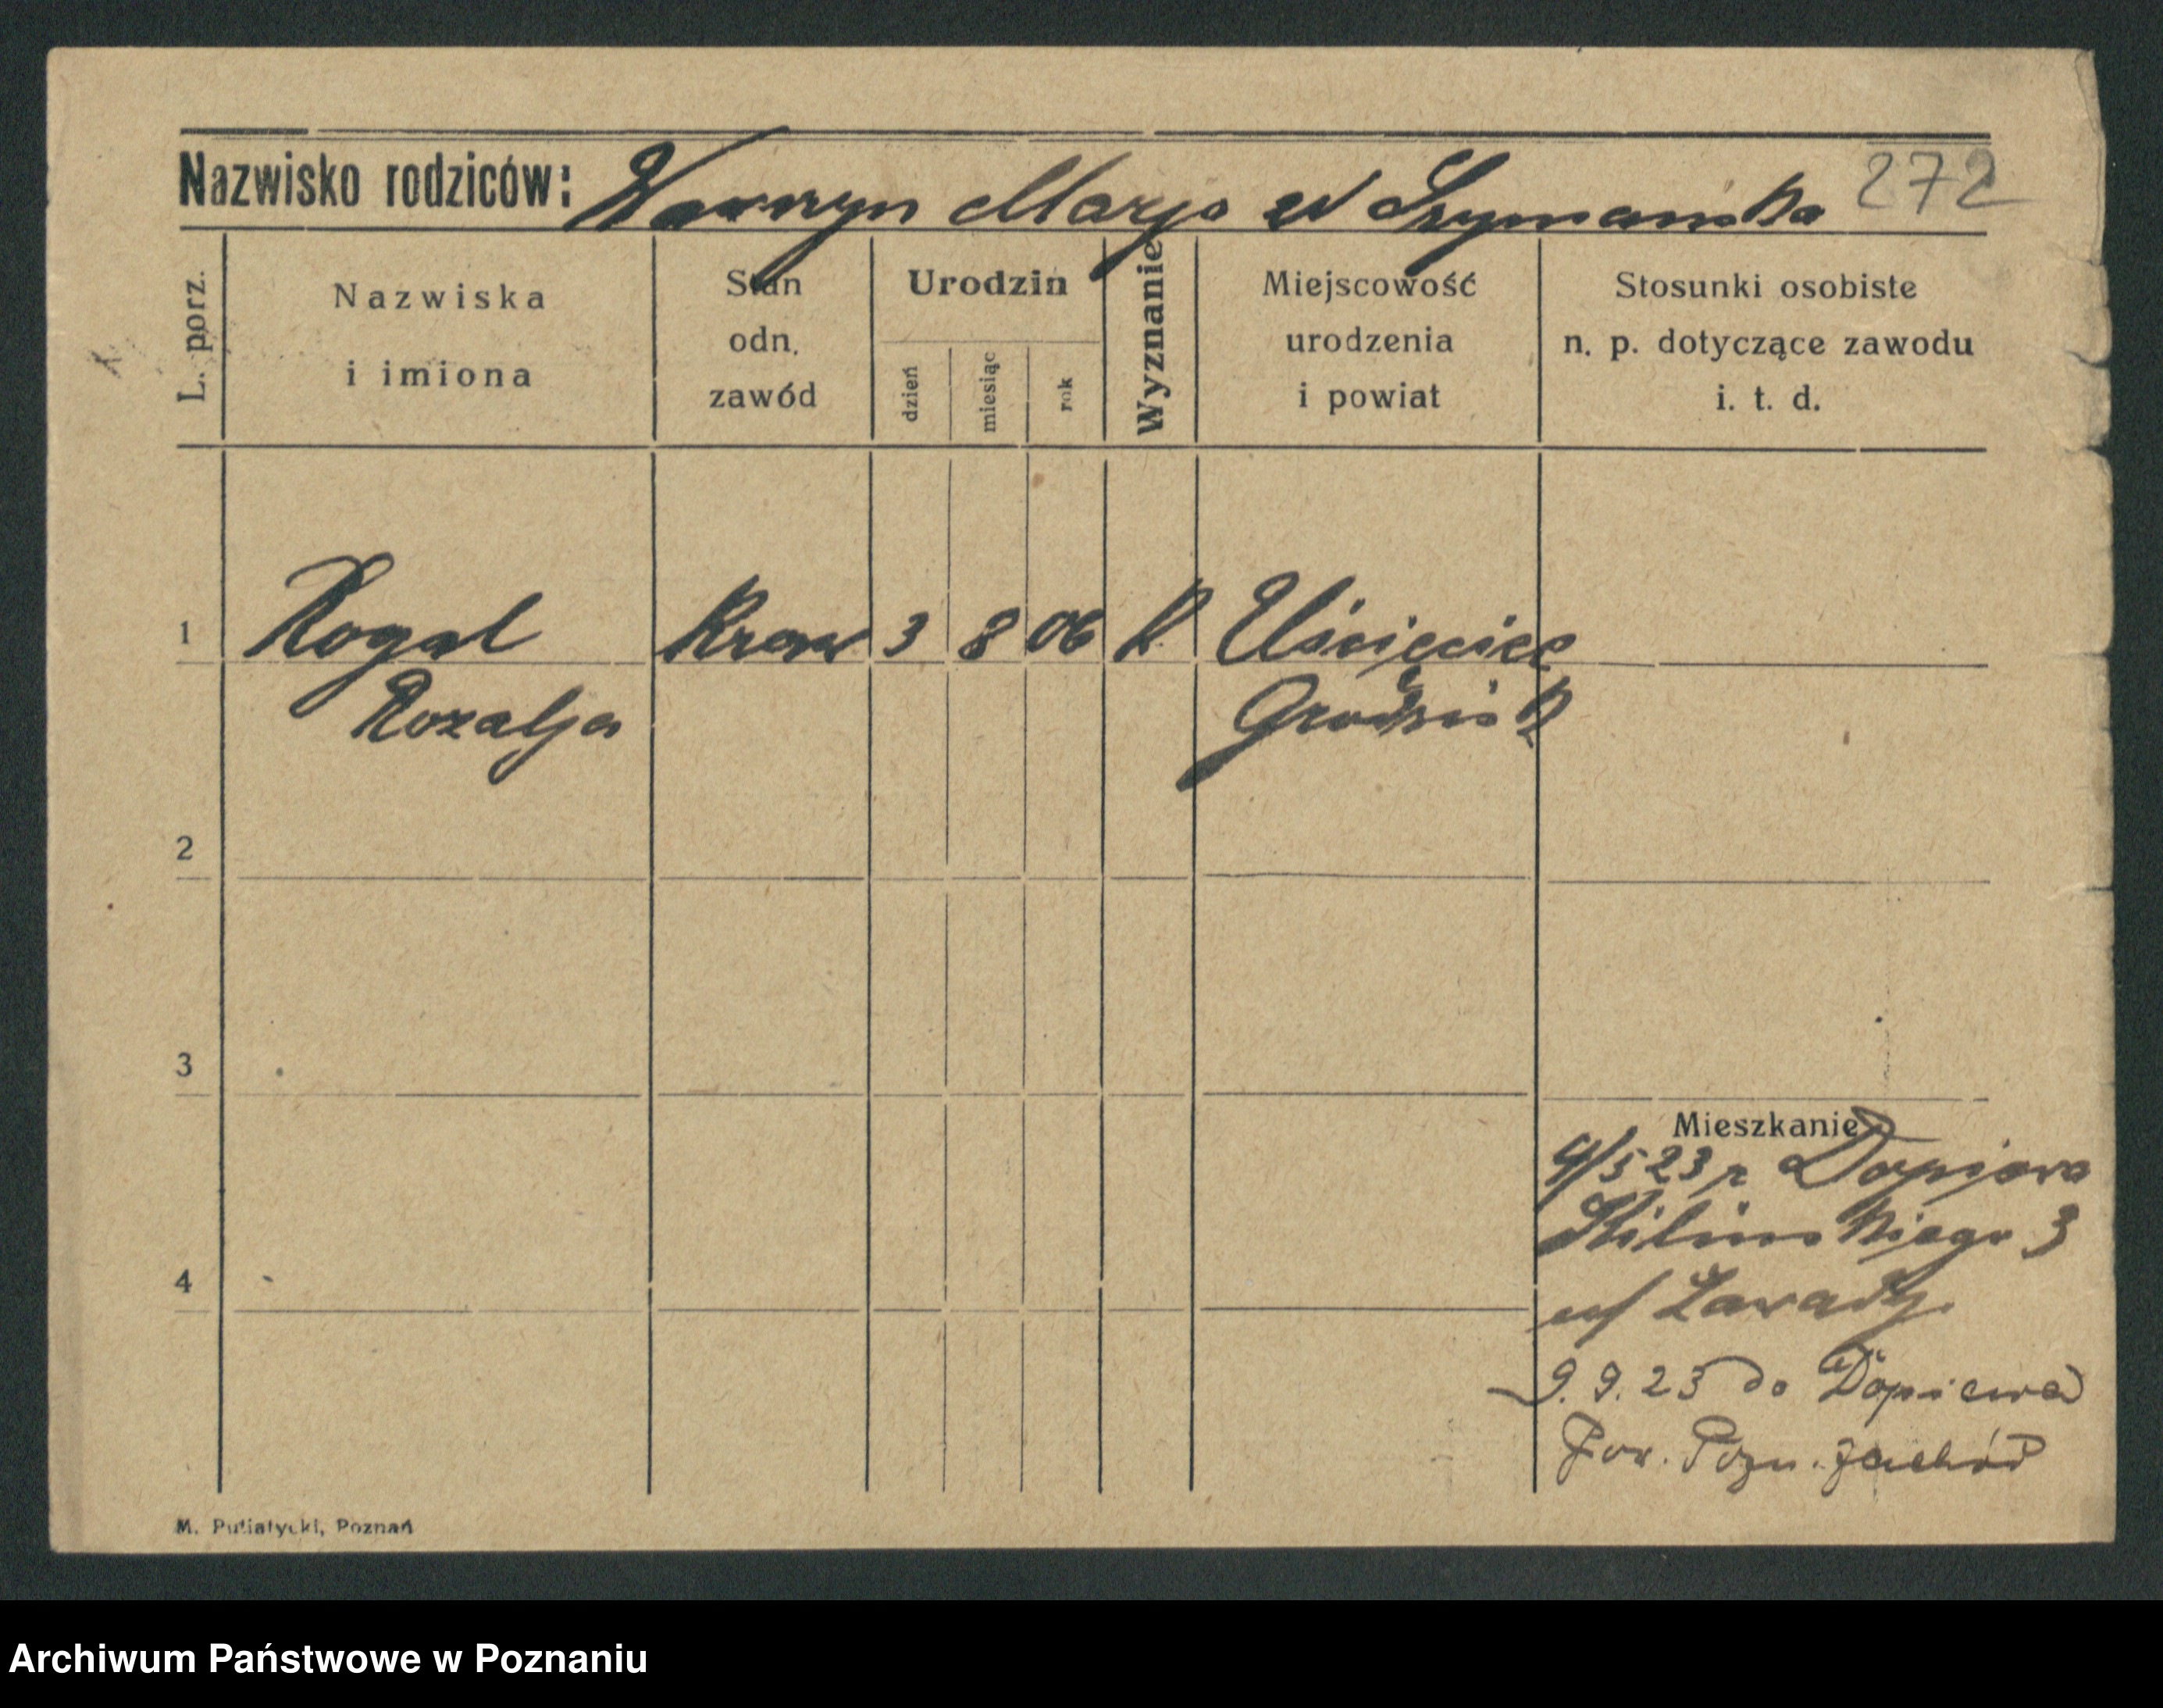 Nazwisko rodziców: Wawrzyn Marja z d Szymańska 272
L. porz.
Nazwiska i imiona
Stan odn. zawód
Urodzin
dzień
miesiąc
rok
Wyznanie
Miejscowość urodzenia i powiat
Stosunki osobiste n. p. dotyczące zawodu i. t. d.
1 Rogal 3 8 06 K Uścięcice
Rozalja Grodzisk
2
3
Mieszkanie
9/5 23 z Dopiewa
Kilińskiego 3
4
u/ Zawady.
9.9.23 do Dopiewa
Pow. Pozn. Zachód
M. Putiatycki, Poznań
Archiwum Państwowe w Poznaniu